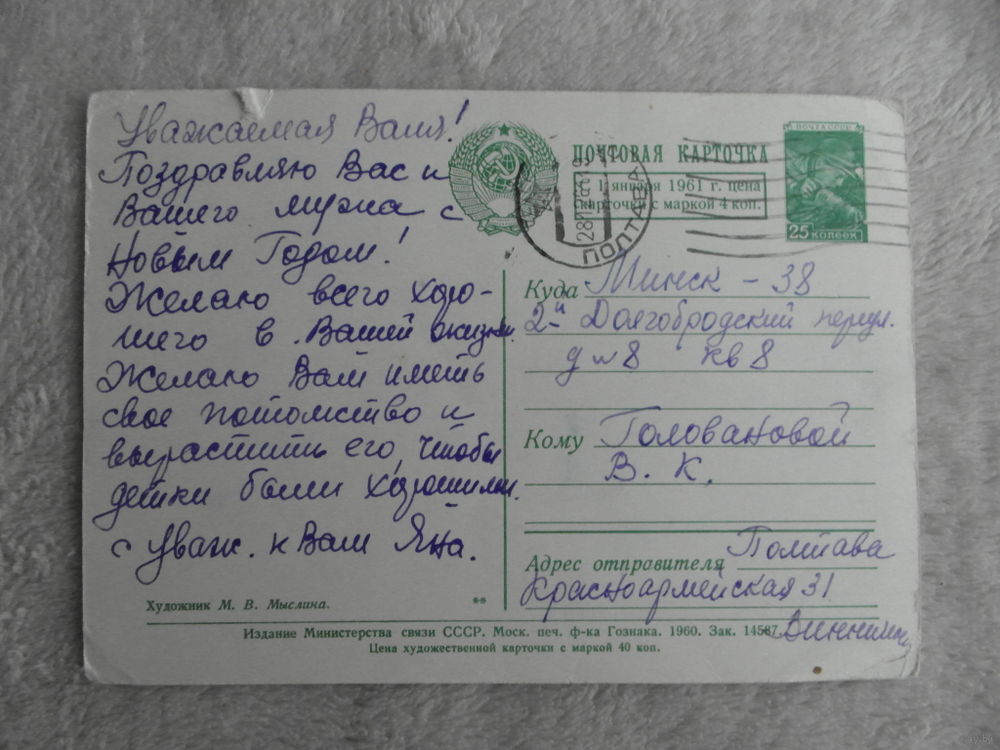 Уважаемая Валя!
Поздравляю Вас и
Вашего мужа с
Новым Годом!
Желаю всего хоро-
шего в Вашей жизни.
Желаю Вам иметь
свое потомство и
вырастить его, чтобы
детки были хорошими.
с уваж. к Вам Яна.
Художник М. В. Мыслина.
**
ПОЧТОВАЯ КАРТОЧКА
С 1 января 1961 г. цена
карточки с маркой 4 коп.
ПОЧТА СССР
25 копеек
ПОЛТАВА
Куда Минск – 38
2й Долгобродский переул.
д № 8 кв 8
Кому Головановой
В. К.
Адрес отправителя Полтава
Красноармейская 31
Издание Министерства связи СССР. Моск. печ. ф-ка Гознака. 1960. Зак. 14587.
Цена художественной карточки с маркой 40 коп.